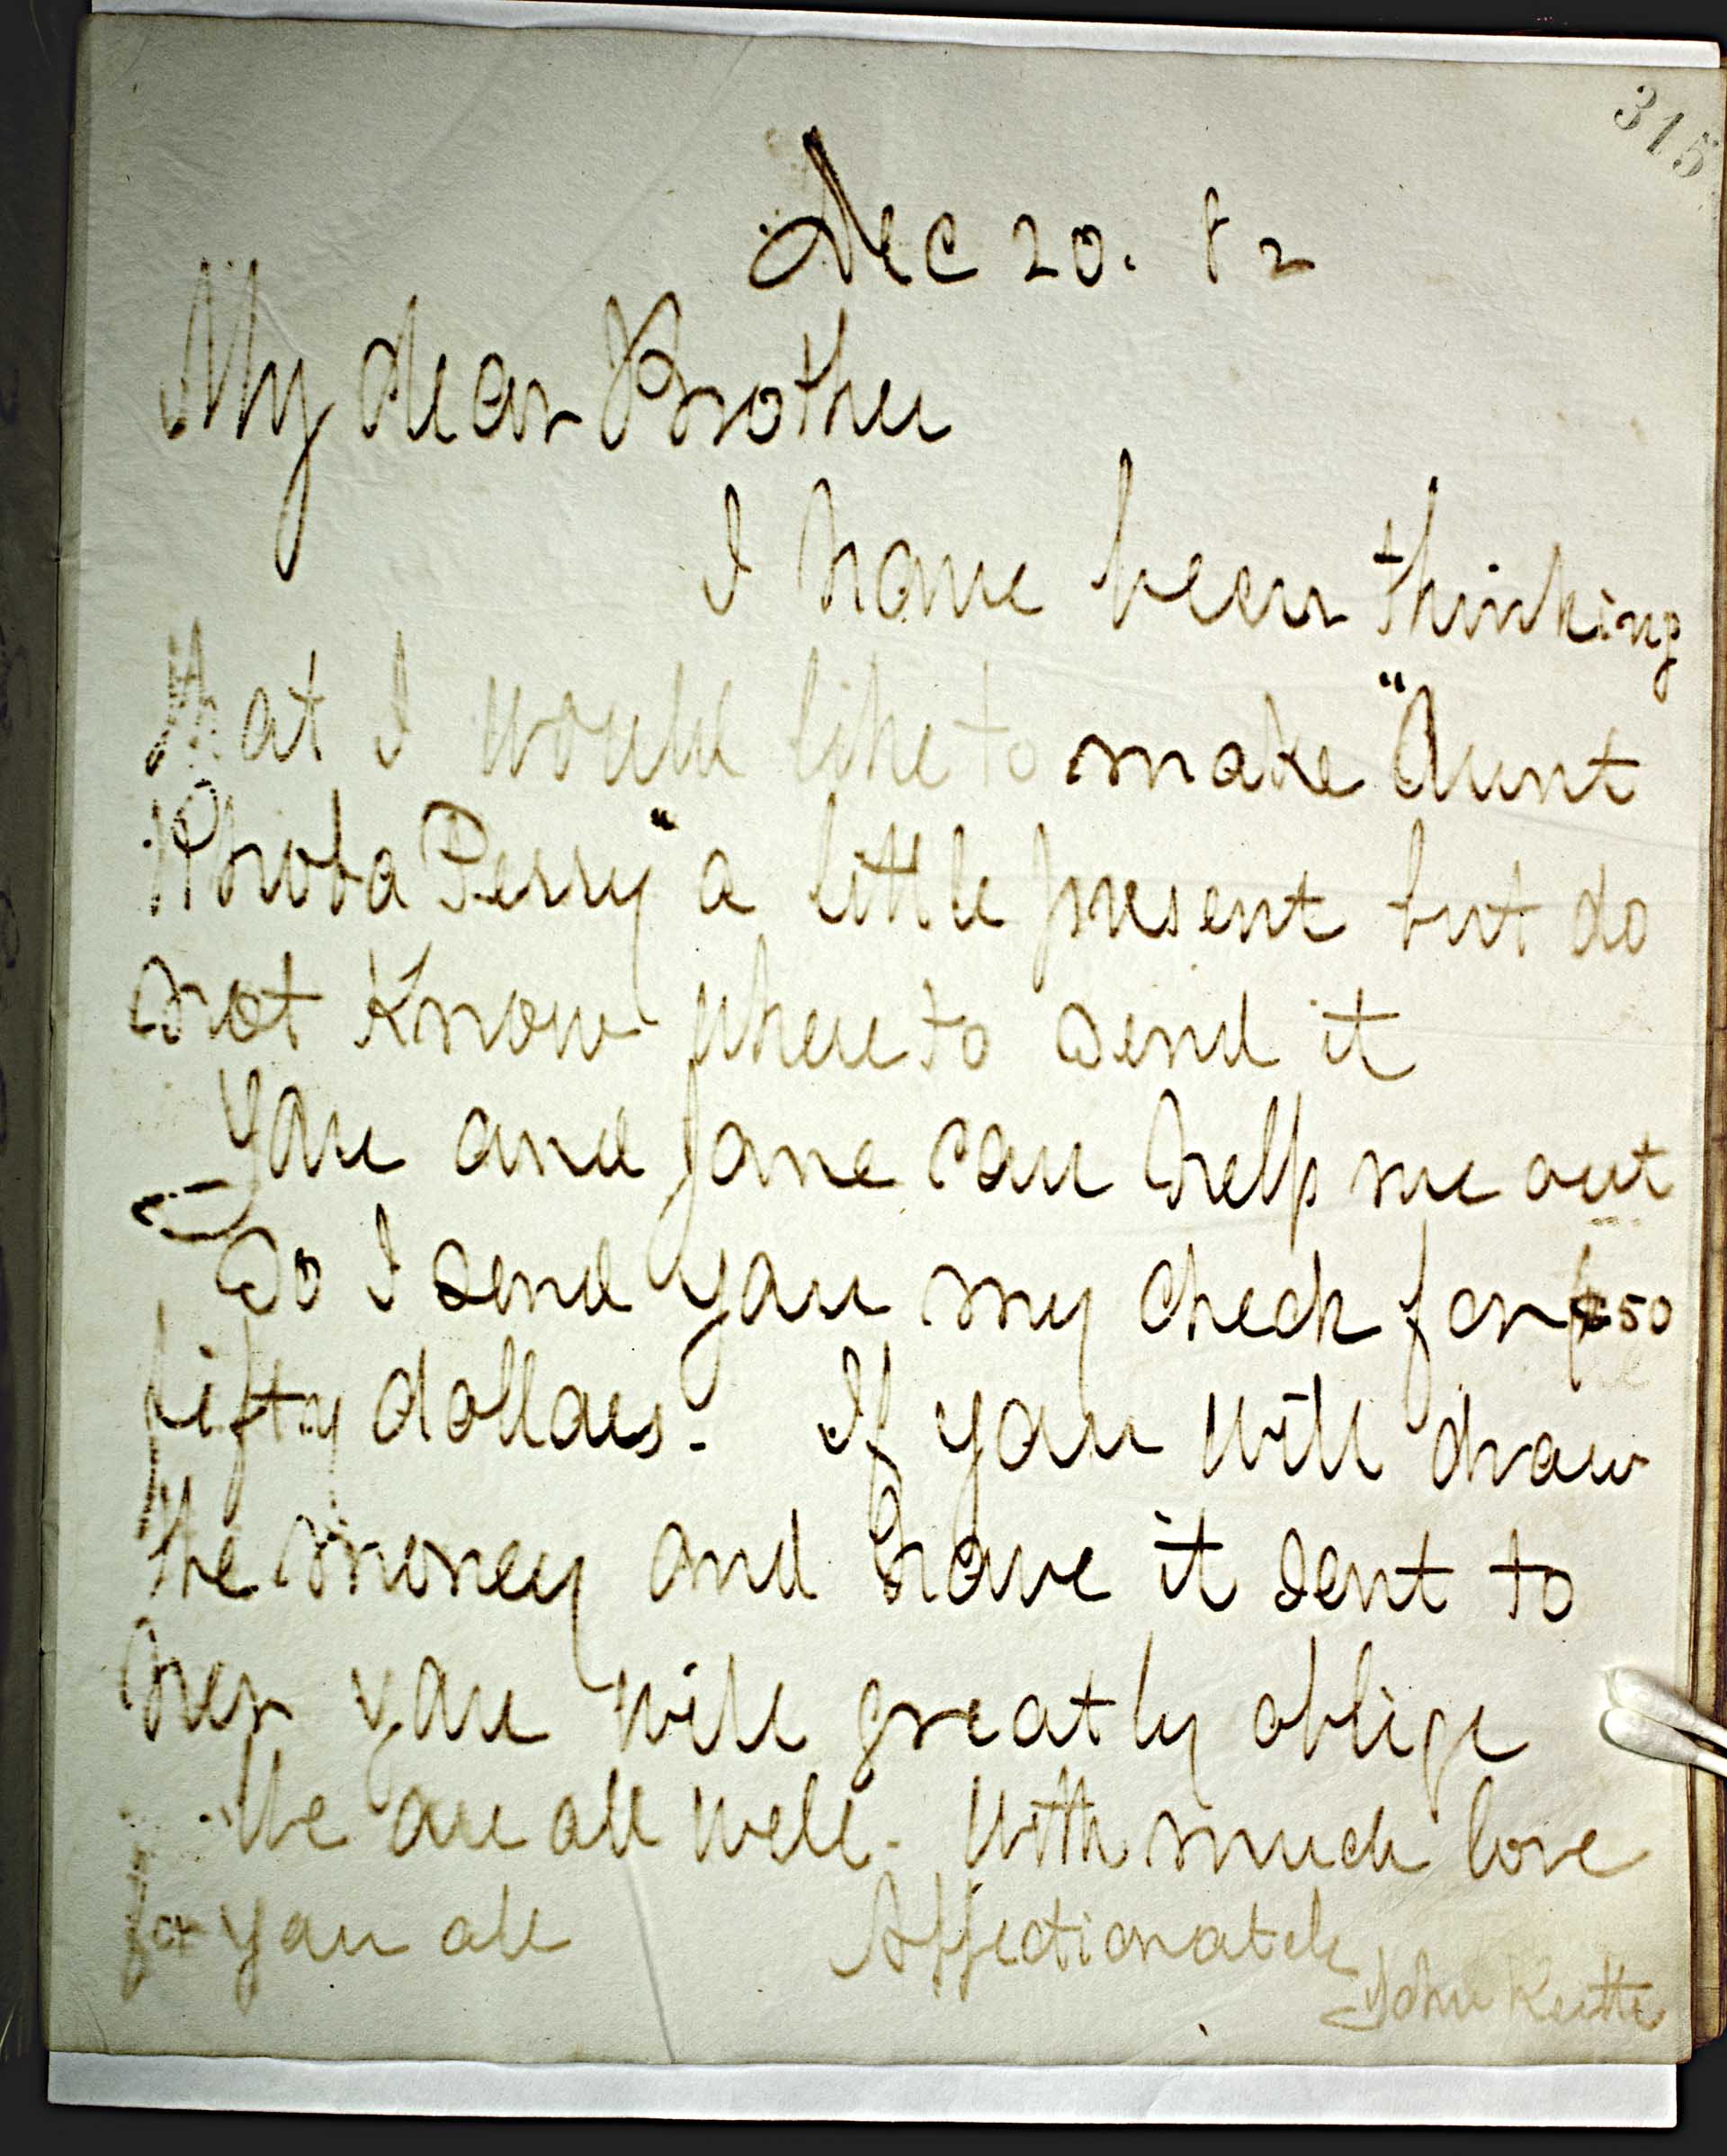 315
Dec 20. 82
My dear Brother
I have been thinking
that I would like to make "Aunt
Rhoba Perry" a little present but do
not know where to send it
You and Jane can help me out
So I send you my check for $50
fifty dollars. If you will draw
the money and have it sent to
her you will greatly oblige
We are all well. With much love
for you all Affectionately
John Keith